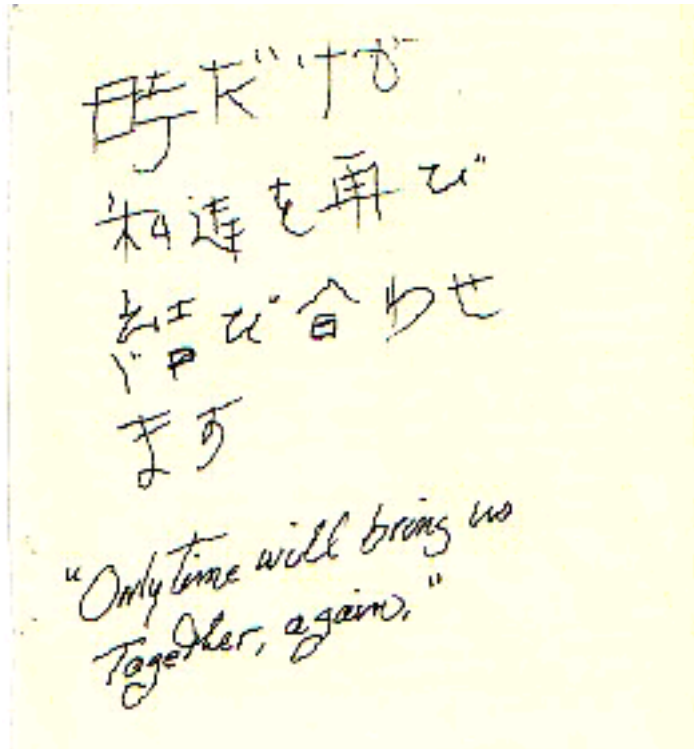 時だけが
私達を再び
結び合わせ
ます
"Only time will bring us
Together, again."